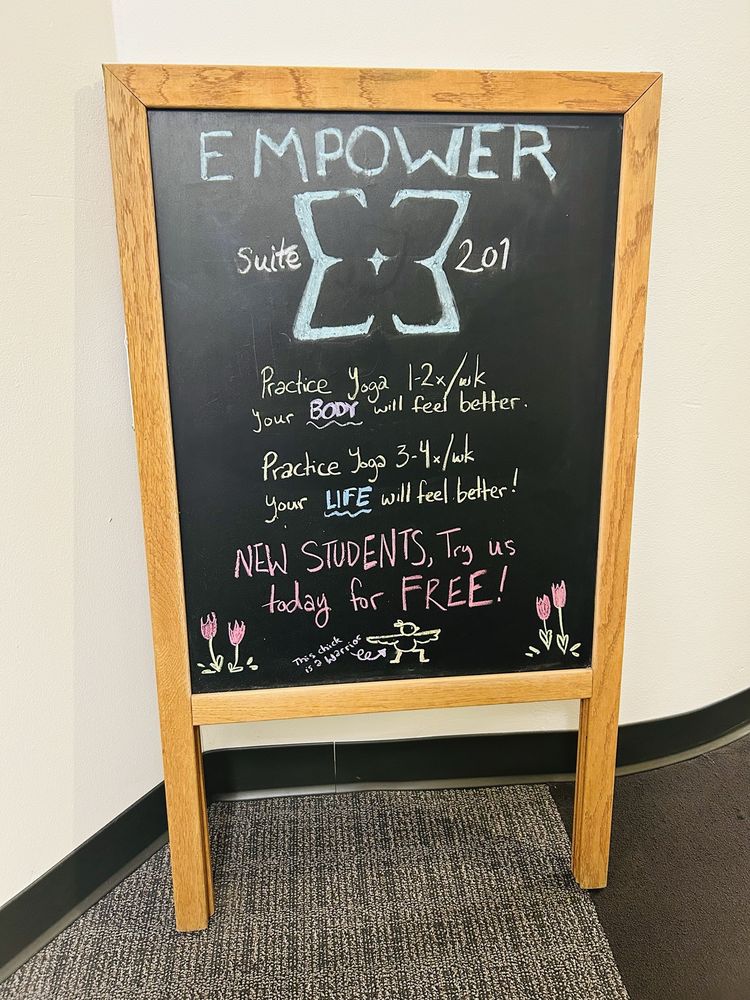 EMPOWER
Suite 201
Practice Yoga 1-2x/wk
your BODY will feel better.
Practice Yoga 3-4x/wk
your LIFE will feel better!
NEW STUDENTS, Try us
today for FREE!
This chick
is a warrior